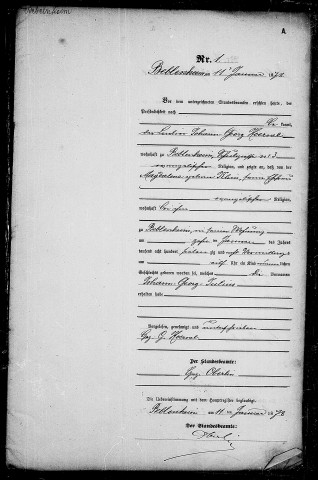 Bebelnheim
A
Nr. 1
Beblenheim am 11 Januar 1878
Vor dem unterzeichneten Standesbeamten erschien heute, der
Persönlichkeit nach
be kannt,
der Johann Georg
wohnhaft zu Beblenheim,
evangelischer Religion, und zeigte an, daß von der
Magdalena geborene Klein, seiner Ehefrau
evangelischer Religion,
wohnhaft bei ihm
zu Beblenheim, in seiner Wohnung
am Januar des Jahres
tausend acht hundert siebenzig und acht Vormittags
um Uhr ein Kind männlichen
Geschlechts geboren worden sei, welches die Vornamen
Johann Georg Julius
erhalten habe
Vorgelesen, genehmigt und unterschrieben
Gez. G.
Der Standesbeamte:
Gez. Oberlin
Die Uebereinstimmung mit dem Hauptregister beglaubigt
Beblenheim am 11 ten Januar 1878
Der Standesbeamte:
Oberlin